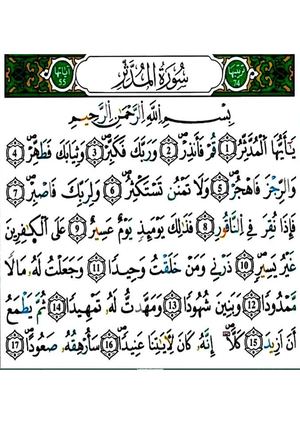 ترتيبها ٧٤ سُورَةُ الْمُدَّثِّرِ آياتها ٥٥
بِسْمِ اللَّهِ الرَّحْمَٰنِ الرَّحِيمِ
يَٰٓأَيُّهَا الْمُدَّثِّرُ ﴿1﴾ قُمْ فَأَنذِرْ ﴿2﴾ وَرَبَّكَ فَكَبِّرْ ﴿3﴾ وَثِيَابَكَ فَطَهِّرْ ﴿4﴾
وَالرُّجْزَ فَاهْجُرْ ﴿5﴾ وَلَا تَمْنُن تَسْتَكْثِرُ ﴿6﴾ وَلِرَبِّكَ فَاصْبِرْ ﴿7﴾
فَإِذَا نُقِرَ فِي النَّاقُورِ ﴿8﴾ فَذَٰلِكَ يَوْمَئِذٍ يَوْمٌ عَسِيرٌ ﴿9﴾ عَلَى الْكَٰفِرِينَ
غَيْرُ يَسِيرٍ ﴿10﴾ ذَرْنِي وَمَنْ خَلَقْتُ وَحِيدًا ﴿11﴾ وَجَعَلْتُ لَهُۥ مَالًا
مَّمْدُودًا ﴿12﴾ وَبَنِينَ شُهُودًا ﴿13﴾ وَمَهَّدتُّ لَهُۥ تَمْهِيدًا ﴿14﴾ ثُمَّ يَطْمَعُ
أَنْ أَزِيدَ ﴿15﴾ كَلَّآ إِنَّهُۥ كَانَ لِءَايَٰتِنَا عَنِيدًا ﴿16﴾ سَأُرْهِقُهُۥ صَعُودًا ﴿17﴾